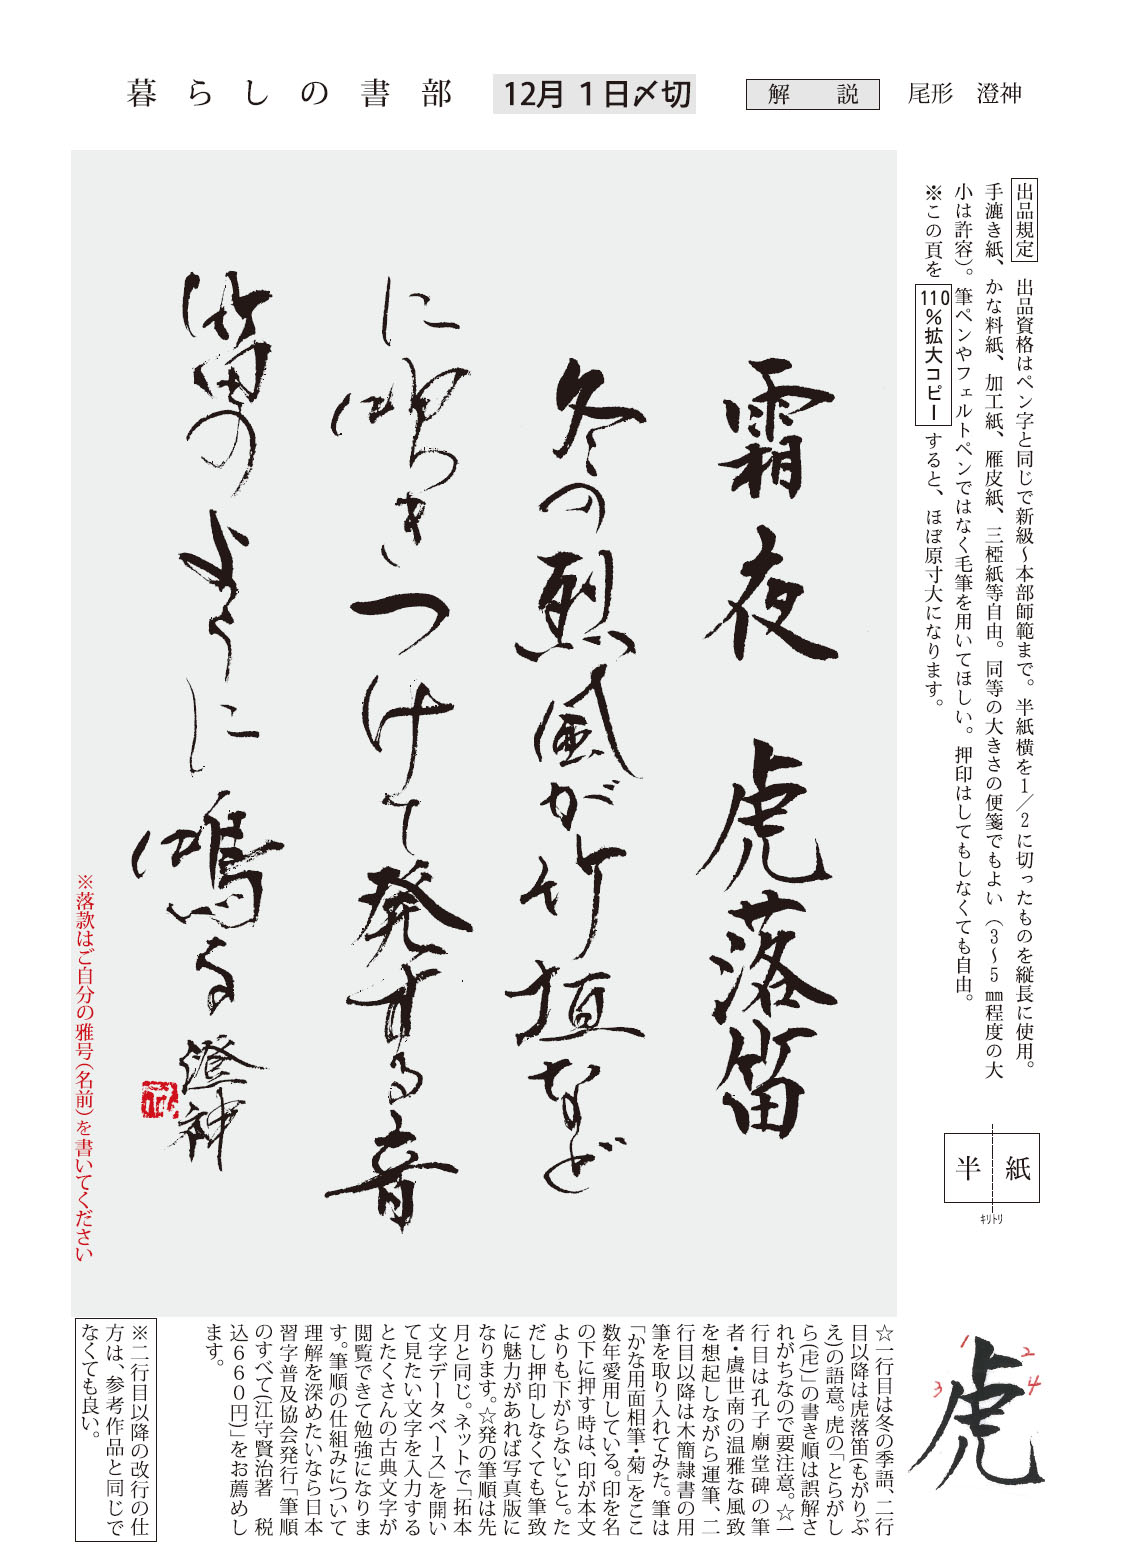 暮らしの書部
12月1日〆切
解説
尾形 澄神
出品規定 出品資格はペン字と同じで新級〜本部師範まで。半紙横を1／2に切ったものを縦長に使用。
手漉き紙、かな料紙、加工紙、雁皮紙、三椏紙等自由。同等の大きさの便箋でもよい（3〜5㎜程度の大
小は許容）。筆ペンやフェルトペンではなく毛筆を用いてほしい。押印はしてもしなくても自由。
※この頁を110％拡大コピーすると、ほぼ原寸大になります。
霜夜 虎落笛
冬の烈風が竹垣など
に吹きつけて発する音
笛のように鳴る 澄神
※落款はご自分の雅号（名前）を書いてください
半紙
ｷﾘﾄﾘ
1
2
3
4
虎
☆一行目は冬の季語、二行
目以降は虎落笛(もがりぶ
え)の語意。虎の「とらがし
ら(虍)」の書き順は誤解さ
れがちなので要注意。☆一
行目は孔子廟堂碑の筆
者・虞世南の温雅な風致
を想起しながら運筆、二
行目以降は木簡隷書の用
筆を取り入れてみた。筆は
「かな用面相筆・菊」をここ
数年愛用している。印を名
の下に押す時は、印が本文
よりも下がらないこと。た
だし押印しなくても筆致
に魅力があれば写真版に
なります。☆発の筆順は先
月と同じ。ネットで「拓本
文字データベース」を開い
て見たい文字を入力する
とたくさんの古典文字が
閲覧できて勉強になりま
す。筆順の仕組みについて
理解を深めたいなら日本
習字普及協会発行「筆順
のすべて(江守賢治著 税
込６６０円)」をお薦めし
ます。
※二行目以降の改行の仕
方は、参考作品と同じで
なくても良い。